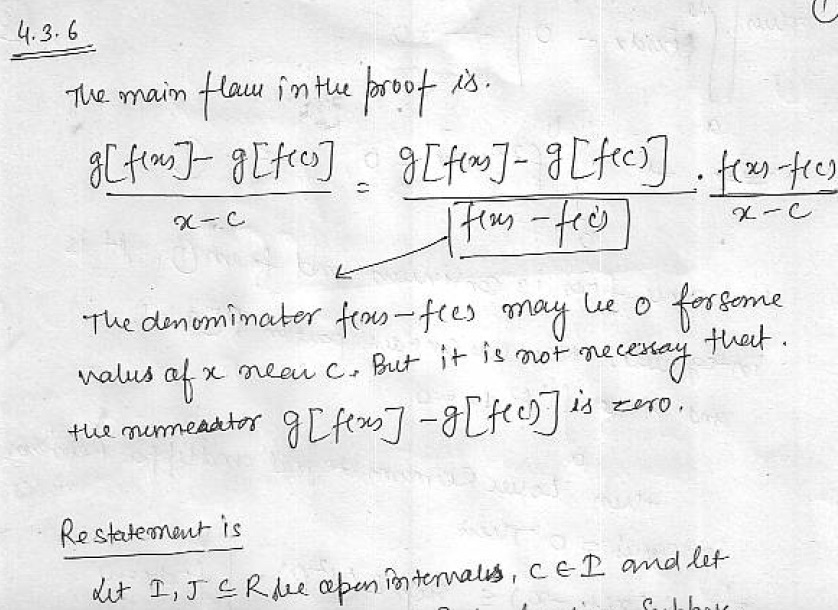 4.3.6
The main flaw in the proof is.
g[f(x)] - g[f(c)] / x-c = g[f(x)] - g[f(c)] / f(x) - f(c) . f(x) - f(c) / x-c
The denominator f(x) - f(c) may be 0 for some
values of x near c. But it is not necessay that.
the numerator g[f(x)] - g[f(c)] is zero.
Restatement is
Let I, J ⊆ R be open intervals, c ∈ I and let